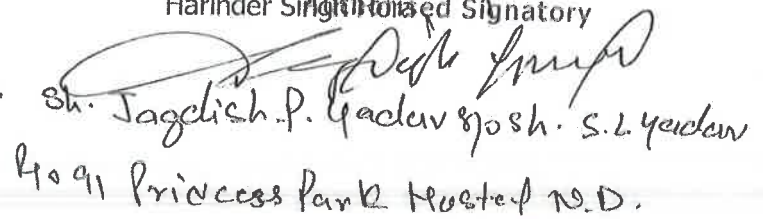 Harinder Singh Authorised Signatory
Sh. Jagdish. P. Yadav S/o Sh. S. L. Yadav
R/o 91 Princess Park Hostel N.D.